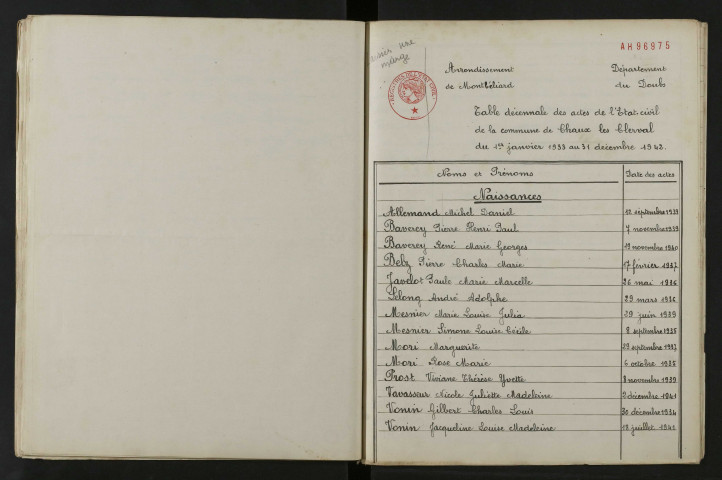 AH 96975
Arrondissement
de Montbéliard
Département
du Doubs
Table décennale des actes de l'Etat-civil
de la commune de Chaux les Clerval
du 1er janvier 1933 au 31 décembre 1942.
Noms et Prénoms Date des actes
Naissances
Allemand Michel Daniel 12 septembre 1939
Baverey Pierre Henri Paul 7 novembre 1939
Baverey René Marie Georges 19 novembre 1940
Belz Pierre Charles Marie 17 février 1937
Javelot Paule Marie Marcelle 26 mai 1936
Lelong André Adolphe 29 mars 1936
Mesnier Marie Louise Julia 29 juin 1939
Mesnier Simone Louise Cécile 8 septembre 1935
Mori Marguerite septembre 1937
Mori Rose Marie 6 octobre 1935
Prost Viviane Thérèse Yvette novembre 1939
Vavasseur Nicole Juliette Madeleine 2 décembre 1941
Vonin Gilbert Charles Louis 30 décembre 1934
Vonin Jacqueline Louise Madeleine 18 juillet 1941